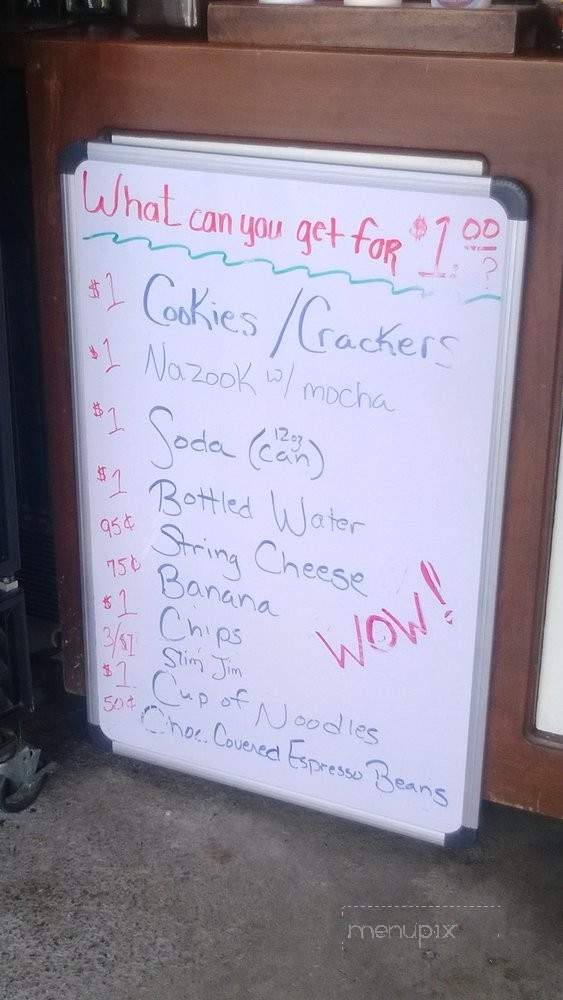 What can you get for $1.00?
$1 Cookies/Crackers
$1 Nazook w/ mocha
$1 Soda (12oz can)
$1 Bottled Water
95¢ String Cheese
75¢ Banana
$1 Chips
3/$1 Slim Jim
$1 Cup of Noodles
50¢ Choc. Covered Espresso Beans
WOW!
menupix